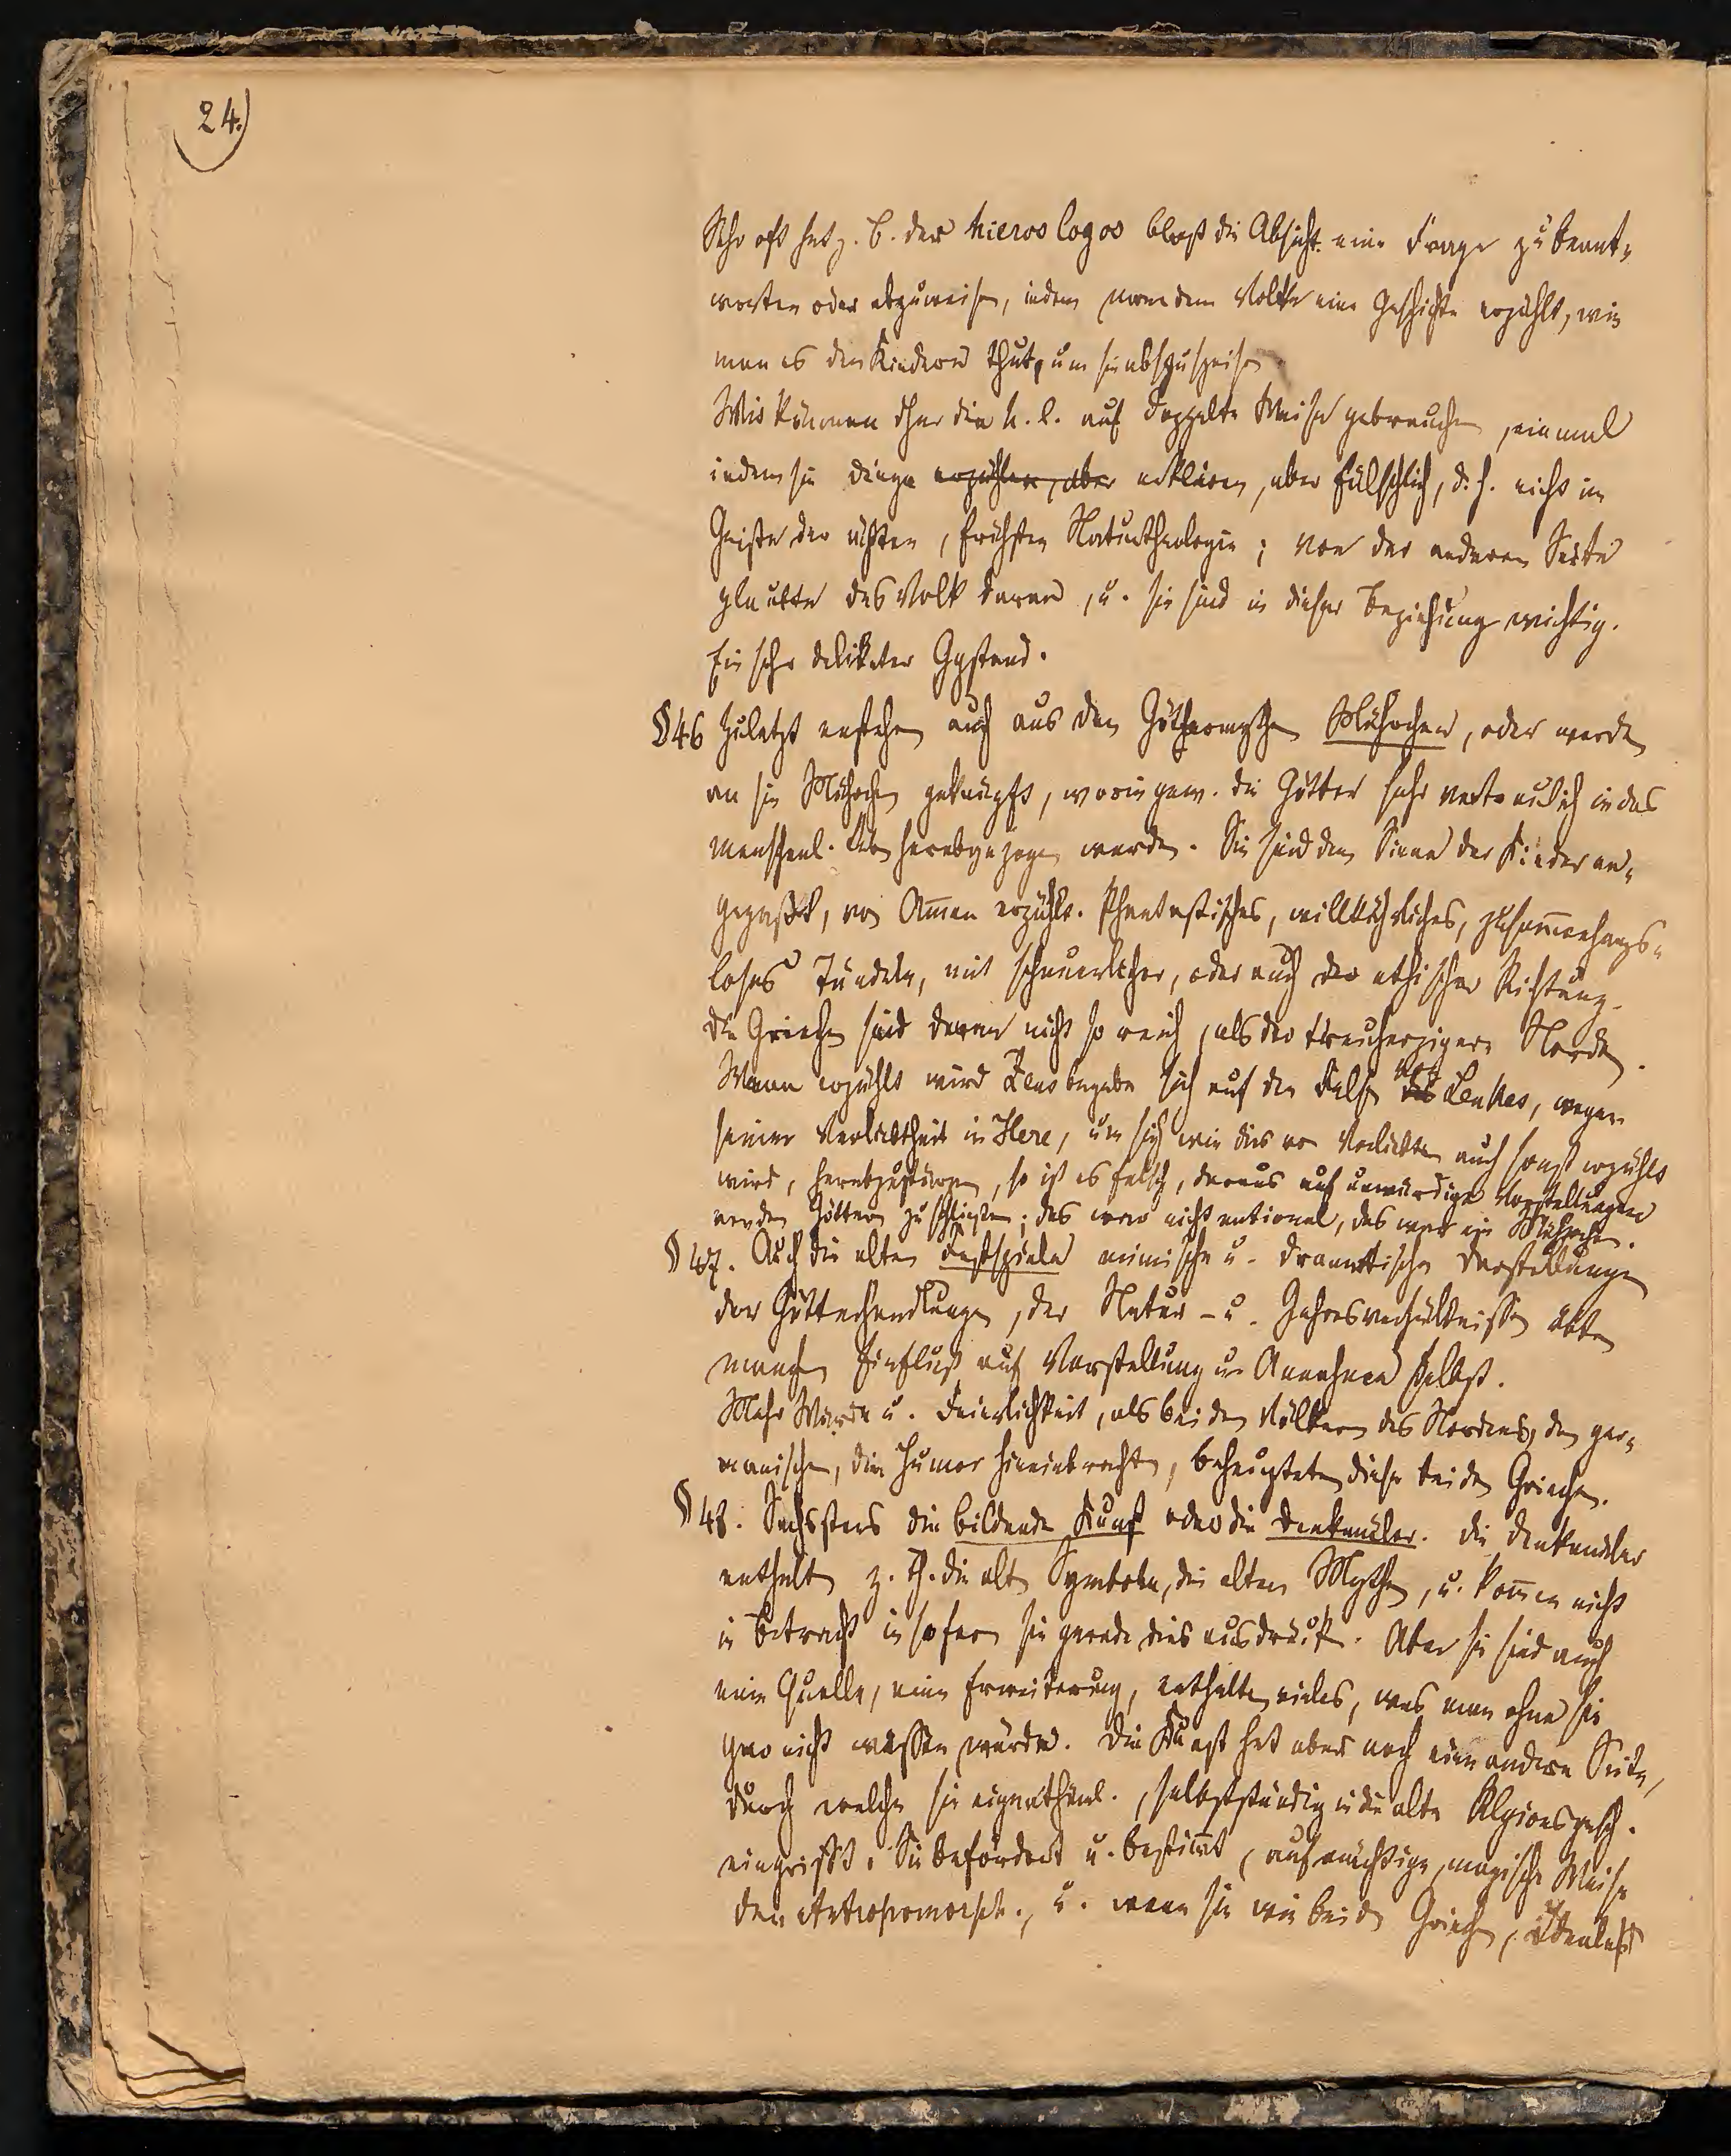 24.)
Sehr oft hat z. B. der hieros logos bloß die Absicht eine Frage zu beant-
worten oder abzuweisen, indem man dem Volke eine Geschichte erzählt, wie
man es den Kindern thut, um sie abzuspeisen.
Wir können eher die h. l. auf doppelte Weise gebrauchen, einmal
indem sie Dinge erzählen, aber erklären, aber fälschlich, d. h. nicht im
Geiste der ächten, frühsten Naturtheologie; von der anderen Seite
glaubte das Volk daran, u. sie sind in dieser Beziehung wichtig.
Ein sehr delikater Ggstand.
§46 Zuletzt enstehen auch aus den Göthermythen Mährchen, oder werden
an sie Mährchen geknüpft, worin gew. die Götter sehr vertraulich in das
menschl. Leben herabgezogen werden. Sie sind dem Sinne der Kinder an-
gepaßt, von Am̄en erzählt. Phantastisches, willkührliches, zusam̄enhangs-
loses Tändeln, mit schauerlicher, oder auch der ethischer Richtung.
Die Griechen sind daran nicht so reich, als der treuherzigere Norden.
Wenn erzählt wird Zeus begebe sich auf den Felsen des von Leukas, wegen
seiner Verliebtheit in Here, um sich wie dies von Verliebten auch sonst erzählt
wird, herabzustürzen, so ist es falsch, daraus auf unwürdige Vorstellungen
von den Göttern zu schließen; das war nicht national, das war ein Mährchen.
§47. Auch die alten Festspiele mimische u. dramatische Darstellungen
der Götterhandlungen, der Natur- u. Jahresverhältnisse übten
manchen Einfluß auf Vorstellung u. Annahmen selbst.
Mehr Würde u. Feierlichkeit, als bei den Völkern des Nordens, den ger-
manischen, die Humor hineinbrachten, behaupteten diese bei den Griechen.
§48. Sechstens die bildende Kunst oder die Denkmäler. Die Denkmäler
enthalten z. Th. die alten Symbole, die alten Mythen, u. kom̄en nicht
in Betracht in sofern sie gerade dies ausdrücken. Aber sie sind auch
eine Quelle, eine Erweiterung, enthalten vieles, was man ohne sie
gar nicht wissen würde. Die Kunst hat aber noch eine andere Seite,
durch welche sie eigenthüml., selbstständig in die alte Religionsgesch.
eingreift. Sie befördert u. bestim̄t, auf mächtige, magische Weise
den Antropomorph., u. wenn sie wie bei den Griechen,